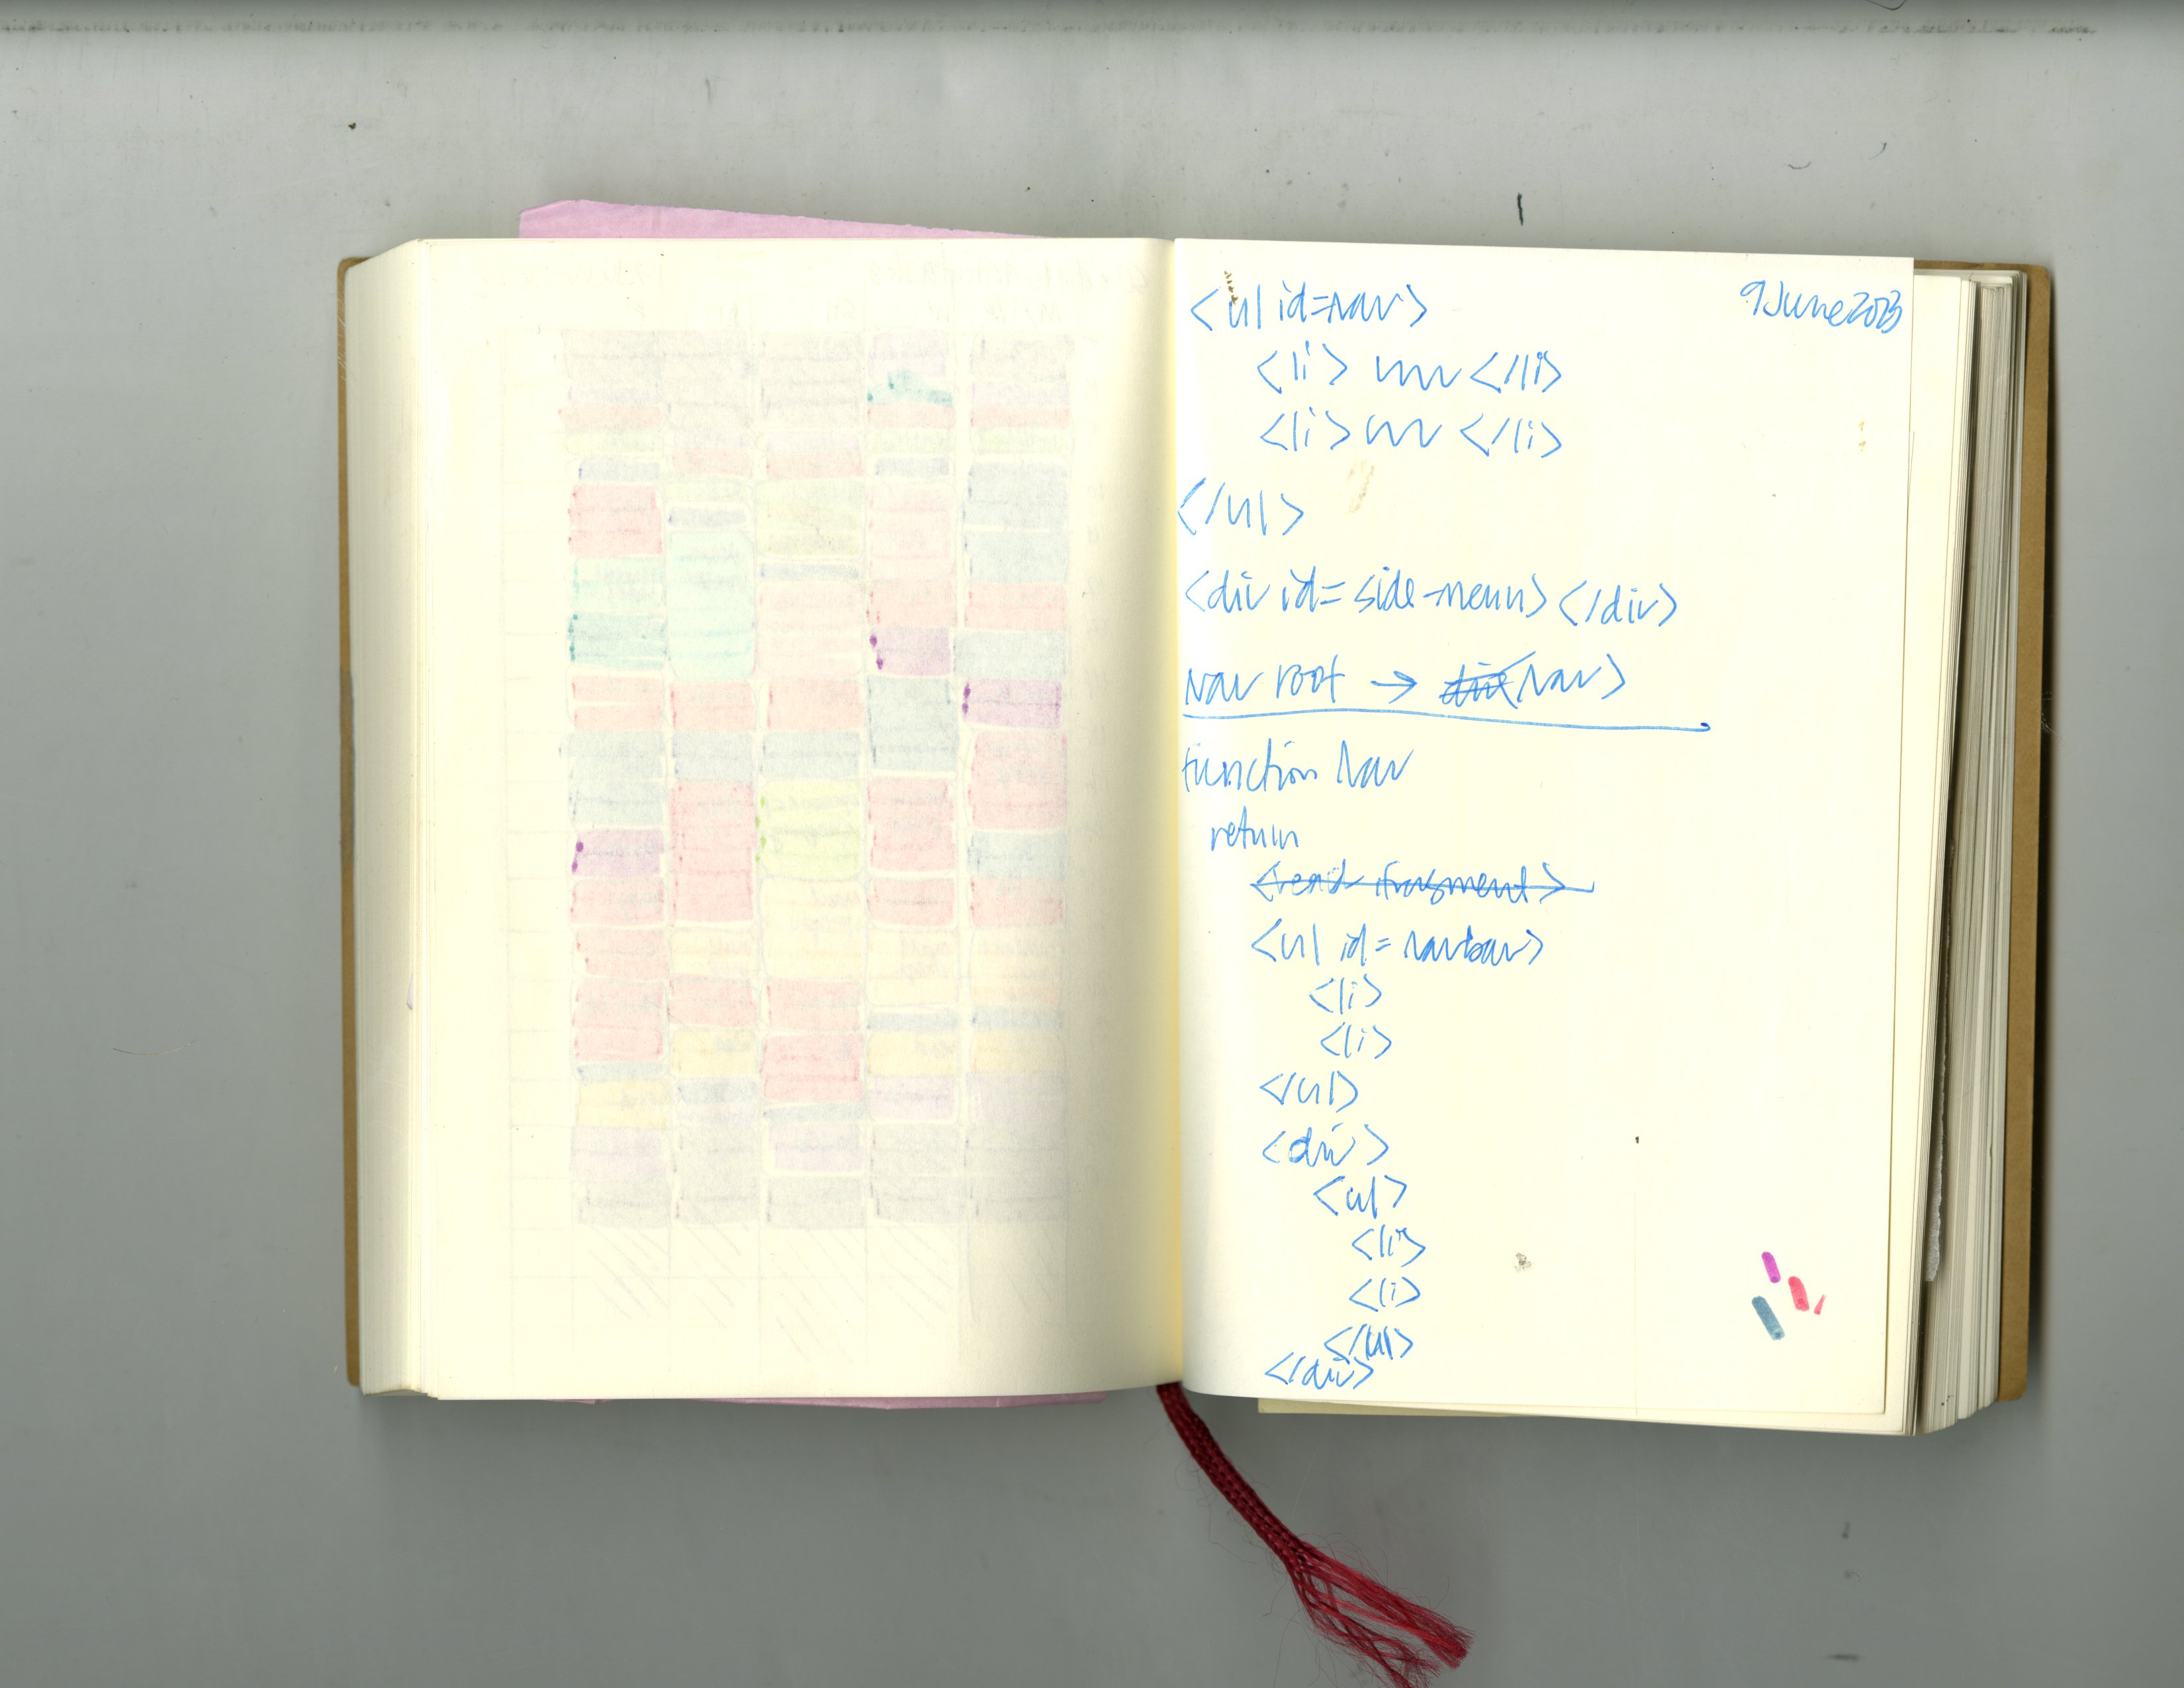 <ul id=nav>
9 June 2023
<li> </li>
<li> </li>
</ul>
<div id=side-menu></div>
Nav root → <Nav>
function Nav
return
<react fragment>
<ul id=navbar>
<li>
<li>
</ul>
<div>
<ul>
<li>
<li>
</ul>
</div>